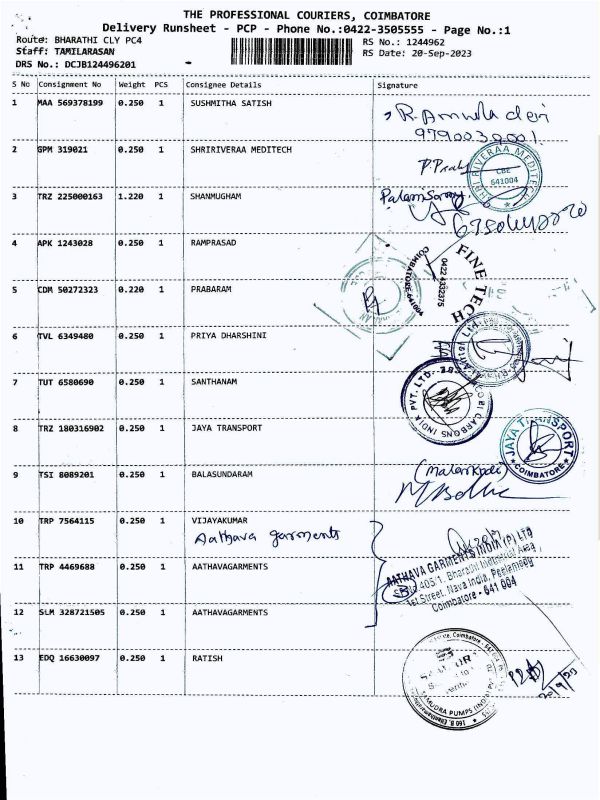 THE PROFESSIONAL COURIERS, COIMBATORE
Delivery Runsheet - PCP - Phone No.:0422-3505555 - Page No.:1
Route: BHARATHI CLY PC4
RS No.: 1244962
Staff: TAMILARASAN
RS Date: 20-Sep-2023
DRS No.: DCJB124496201
S No Consignment No Weight PCS Consignee Details Signature
1 MAA 569378199 0.250 1 SUSHMITHA SATISH
R. Amula devi
9790039001.
2 GPM 319021 0.250 1 SHRIRIVERAA MEDITECH
SHRI RIVERAA MEDITECH
CBE
641004
3 TRZ 225000163 1.220 1 SHANMUGHAM
4 APK 1243028 0.250 1 RAMPRASAD
FINE TECH
0422 4332375
COIMBATORE-641004
5 CDM 50272323 0.220 1 PRABARAM
6 TVL 6349480 0.250 1 PRIYA DHARSHINI
7 TUT 6580690 0.250 1 SANTHANAM
CARBONS INDIA PVT. LTD.
8 TRZ 180316902 0.250 1 JAYA TRANSPORT
JAYA TRANSPORT
COIMBATORE
9 TSI 8089201 0.250 1 BALASUNDARAM
10 TRP 7564115 0.250 1 VIJAYAKUMAR
Aathava garments
11 TRP 4469688 0.250 1 AATHAVAGARMENTS
AATHAVA GARMENTS INDIA (P) LTD
405/1, Bharathi Industrial Area
1st Street, Nava India, Peelamedu
Coimbatore - 641 004
12 SLM 328721505 0.250 1 AATHAVAGARMENTS
13 EDQ 16630097 0.250 1 RATISH
SAMUDRA PUMPS (INDIA)
20/9/23